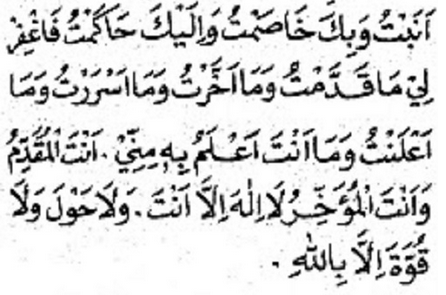 اَنَبْتُ وَبِكَ خَاصَمْتُ وَاِلَيْكَ حَاكَمْتُ فَاغْفِرْ
لِيْ مَا قَدَّمْتُ وَمَا اَخَّرْتُ وَمَا اَسْرَرْتُ وَمَا
اَعْلَنْتُ وَمَا اَنْتَ اَعْلَمُ بِهٖ مِنِّيْ . اَنْتَ الْمُقَدِّمُ
وَاَنْتَ الْمُؤَخِّرُ لَا اِلٰهَ اِلَّا اَنْتَ . وَلَا حَوْلَ وَلَا
قُوَّةَ اِلَّا بِاللّٰهِ .